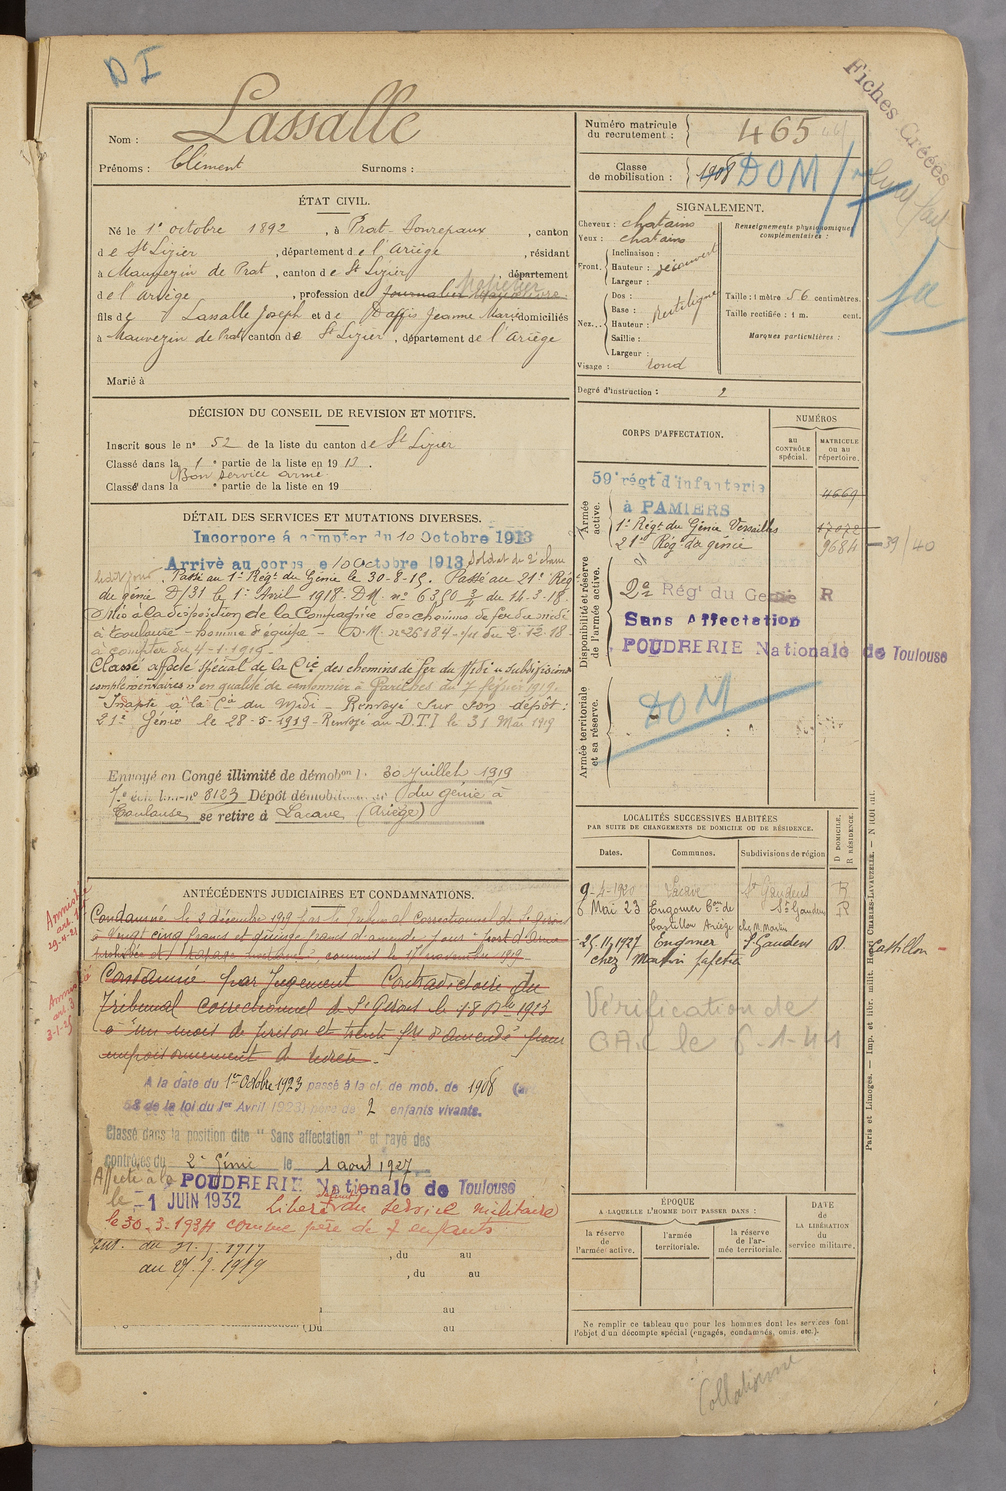 D I
Fiches Créées
Nom : Lassalle
Prénoms : Clément Surnoms :
Numéro matricule du recrutement : 465
Classe de mobilisation : 1908 DOM
ÉTAT CIVIL.
Né le 1er octobre 1892, à Prat-Bonrepaux, canton
de St Lizier, département de l'Ariège, résidant
à Mauvezin de Prat, canton de St Lizier, département
de l'Ariège, profession de journalier
fils de Lassalle Joseph et de Daffis Jeanne Marie domiciliés
à Mauvezin de Prat canton de St Lizier, département de l'Ariège
Marié à
SIGNALEMENT.
Cheveux : chatains
Yeux : chatains
Front. Inclinaison :
Hauteur : découvert
Largeur :
Nez... Dos : Rectiligne
Base :
Hauteur :
Saillie :
Largeur :
Visage : rond
Renseignements physionomiques complémentaires :
Taille : 1 mètre 56 centimètres.
Taille rectifiée : 1 m. cent.
Marques particulières :
Degré d'instruction : 2
DÉCISION DU CONSEIL DE REVISION ET MOTIFS.
Inscrit sous le n° 52 de la liste du canton de St Lizier
Classé dans la 1e partie de la liste en 1913.
Bon service armé
Classé dans la e partie de la liste en 19
DÉTAIL DES SERVICES ET MUTATIONS DIVERSES.
Incorporé à compter du 10 Octobre 1913
Arrivé au corps le 10 Octobre 1913 Soldat de 2e classe
Passé au 1er Régt du Génie le 30-8-15. Passé au 21e Rég
du génie D/31 le 1er Avril 1918. D.M. n° 6380 3/4 du 14-3-18.
Mis à la disposition de la Compagnie des chemins de fer du midi
à Toulouse - homme d'équipe - D.M. n° 26184 du 2-12-18
à compter du 4-1-1919
Classé affecté spécial de la Cie des chemins de fer du Midi "subdivisions
complémentaires" en qualité de cantonnier à du 7 février 1919
Inapte à la Cie du Midi - Renvoyé sur son dépôt :
21e Génie le 28-5-1919 - Renvoyé au D.T.I le 31 Mai 1919
Envoyé en Congé illimité de démobon le 30 Juillet 1919
7e éch lon n° 8123 Dépôt démobilisateur du génie à
Toulouse se retire à Lacave (Ariège)
CORPS D'AFFECTATION.
NUMÉROS
AU CONTRÔLE spécial.
MATRICULE OU AU répertoire.
Armée active.
59e régt d'infanterie
à PAMIERS 4669
1er Régt du Génie Versailles 17072
21e Rég. du génie 9684 - 39/40
Disponibilité et réserve de l'armée active.
2e Régt du Génie R
Sans Affectation
POUDRERIE Nationale de Toulouse
Armée territoriale et sa réserve.
DOM
LOCALITÉS SUCCESSIVES HABITÉES
PAR SUITE DE CHANGEMENTS DE DOMICILE OU DE RÉSIDENCE.
Dates. Communes. Subdivisions de région D DOMICILE, R RÉSIDENCE.
9-4-1920 Lacave St Gaudens R
6 Mai 23 Engomer Cne de St Gaudens R
Castillon Ariège chez M. Martin
25/4/1927 Engomer St Gaudens D. Castillon -
chez Martin
Vérification de
le 6-1-41
ANTÉCÉDENTS JUDICIAIRES ET CONDAMNATIONS.
Amnistié
29-4-21
Condamné le 2 décembre 1919 par le Tribunal Correctionnel de St Girons
à vingt cinq francs et quinze francs d'amende pour "port d'arme
prohibée et commis le 11 novembre 1919
Amnistié
art. 3
3-1-25
Condamné par jugement Contradictoire du
Tribunal correctionnel de St Girons le 18 1923
à "un mois de prison et trente frs d'amende" pour
empoisonnement de
A la date du 1er Octobre 1923 passé à la cl. de mob. de 1908 (art
58 de la loi du 1er Avril 1923) père de 2 enfants vivants.
Classé dans la position dite "Sans affectation" et rayé des
contrôles du 2e Génie le 1 aout 1927
Affecté à la POUDRERIE Nationale de Toulouse
le -1 JUIN 1932 Libéré définitif du service militaire
le 30-3-1934 comme père de 7 enfants.
, du au
au 27. 7. 1919 , du au
au
(Du au
ÉPOQUE
A LAQUELLE L'HOMME DOIT PASSER DANS :
la réserve de l'armée active.
l'armée territoriale.
la réserve de l'armée territoriale.
DATE de LA LIBÉRATION du service militaire.
Ne remplir ce tableau que pour les hommes dont les services font
l'objet d'un décompte spécial (engagés, condamnés, omis, etc.).
Paris et Limoges. — Imp. et libr. milit. Henri CHARLES-LAVAUZELLE.
Collationné